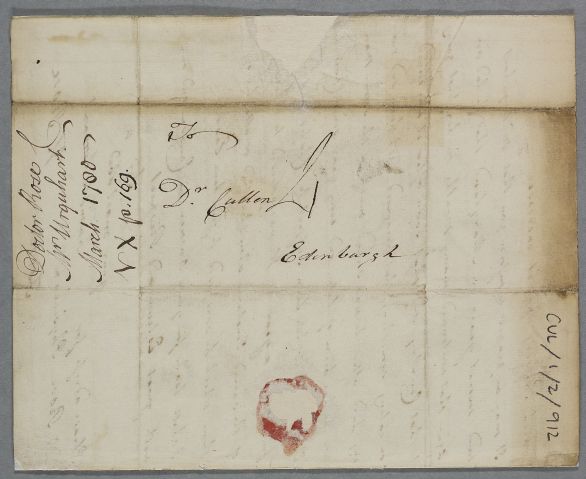 To
Dr. Cullen
Edinburgh
Doctor Rose
Mr Urquhart
March 1780
V X p. 169.
CUL/1/2/912